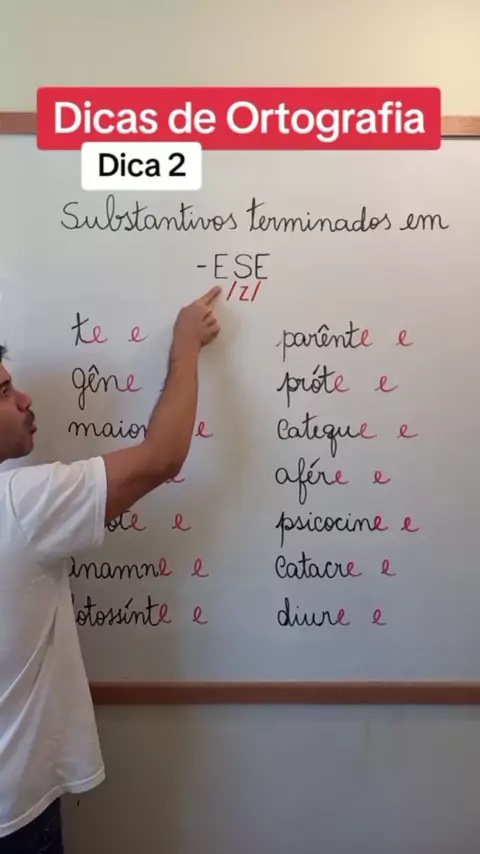 Dicas de Ortografia
Dica 2
Substantivos terminados em
-ESE
/z/
te e
gêne
maio e
e
óte e
anamne e
otossínte e
parênte e
próte e
cateque e
afére e
psicocine e
catacre e
diure e